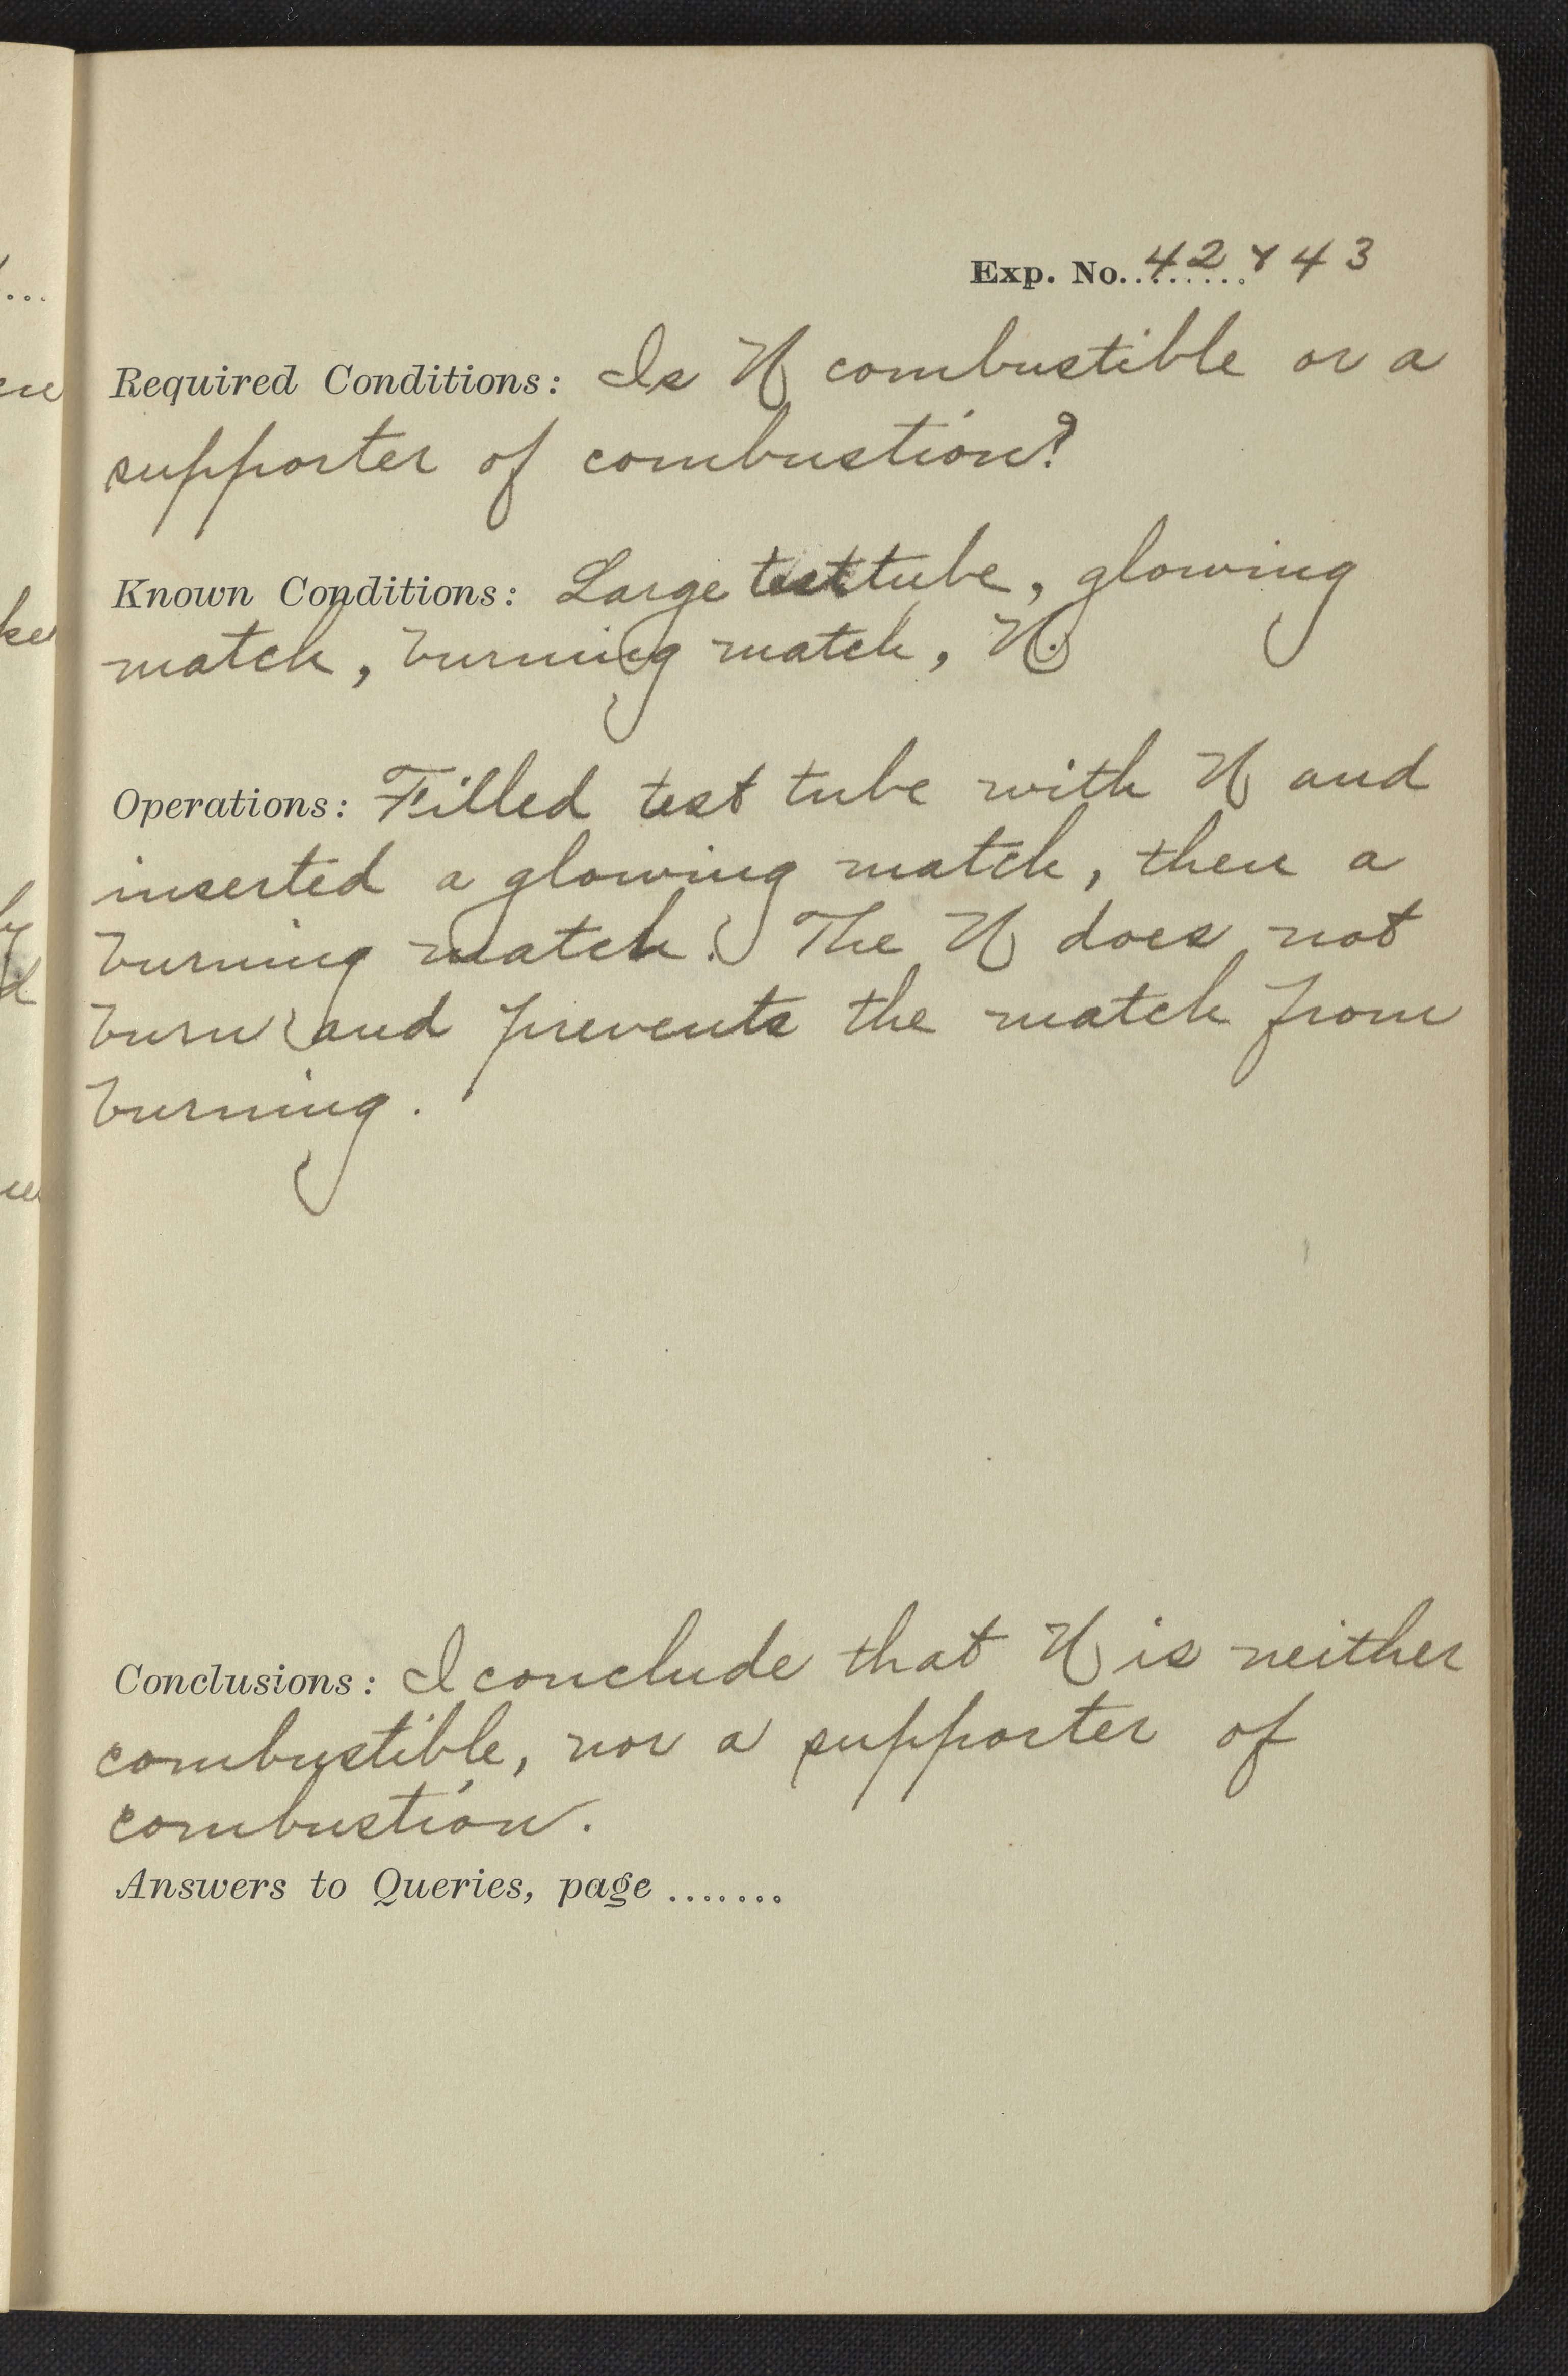 Exp. No. 42 & 43
Required Conditions: Is N combustible or a
supporter of combustion?
Known Conditions: Large test tube, glowing
match, burning match, N.
Operations: Filled test tube with N and
inserted a glowing match, then a
burning match. The N does not
burn and prevents the match from
burning.
Conclusions: I conclude that N is neither
combustible, nor a supporter of
combustion.
Answers to Queries, page .......